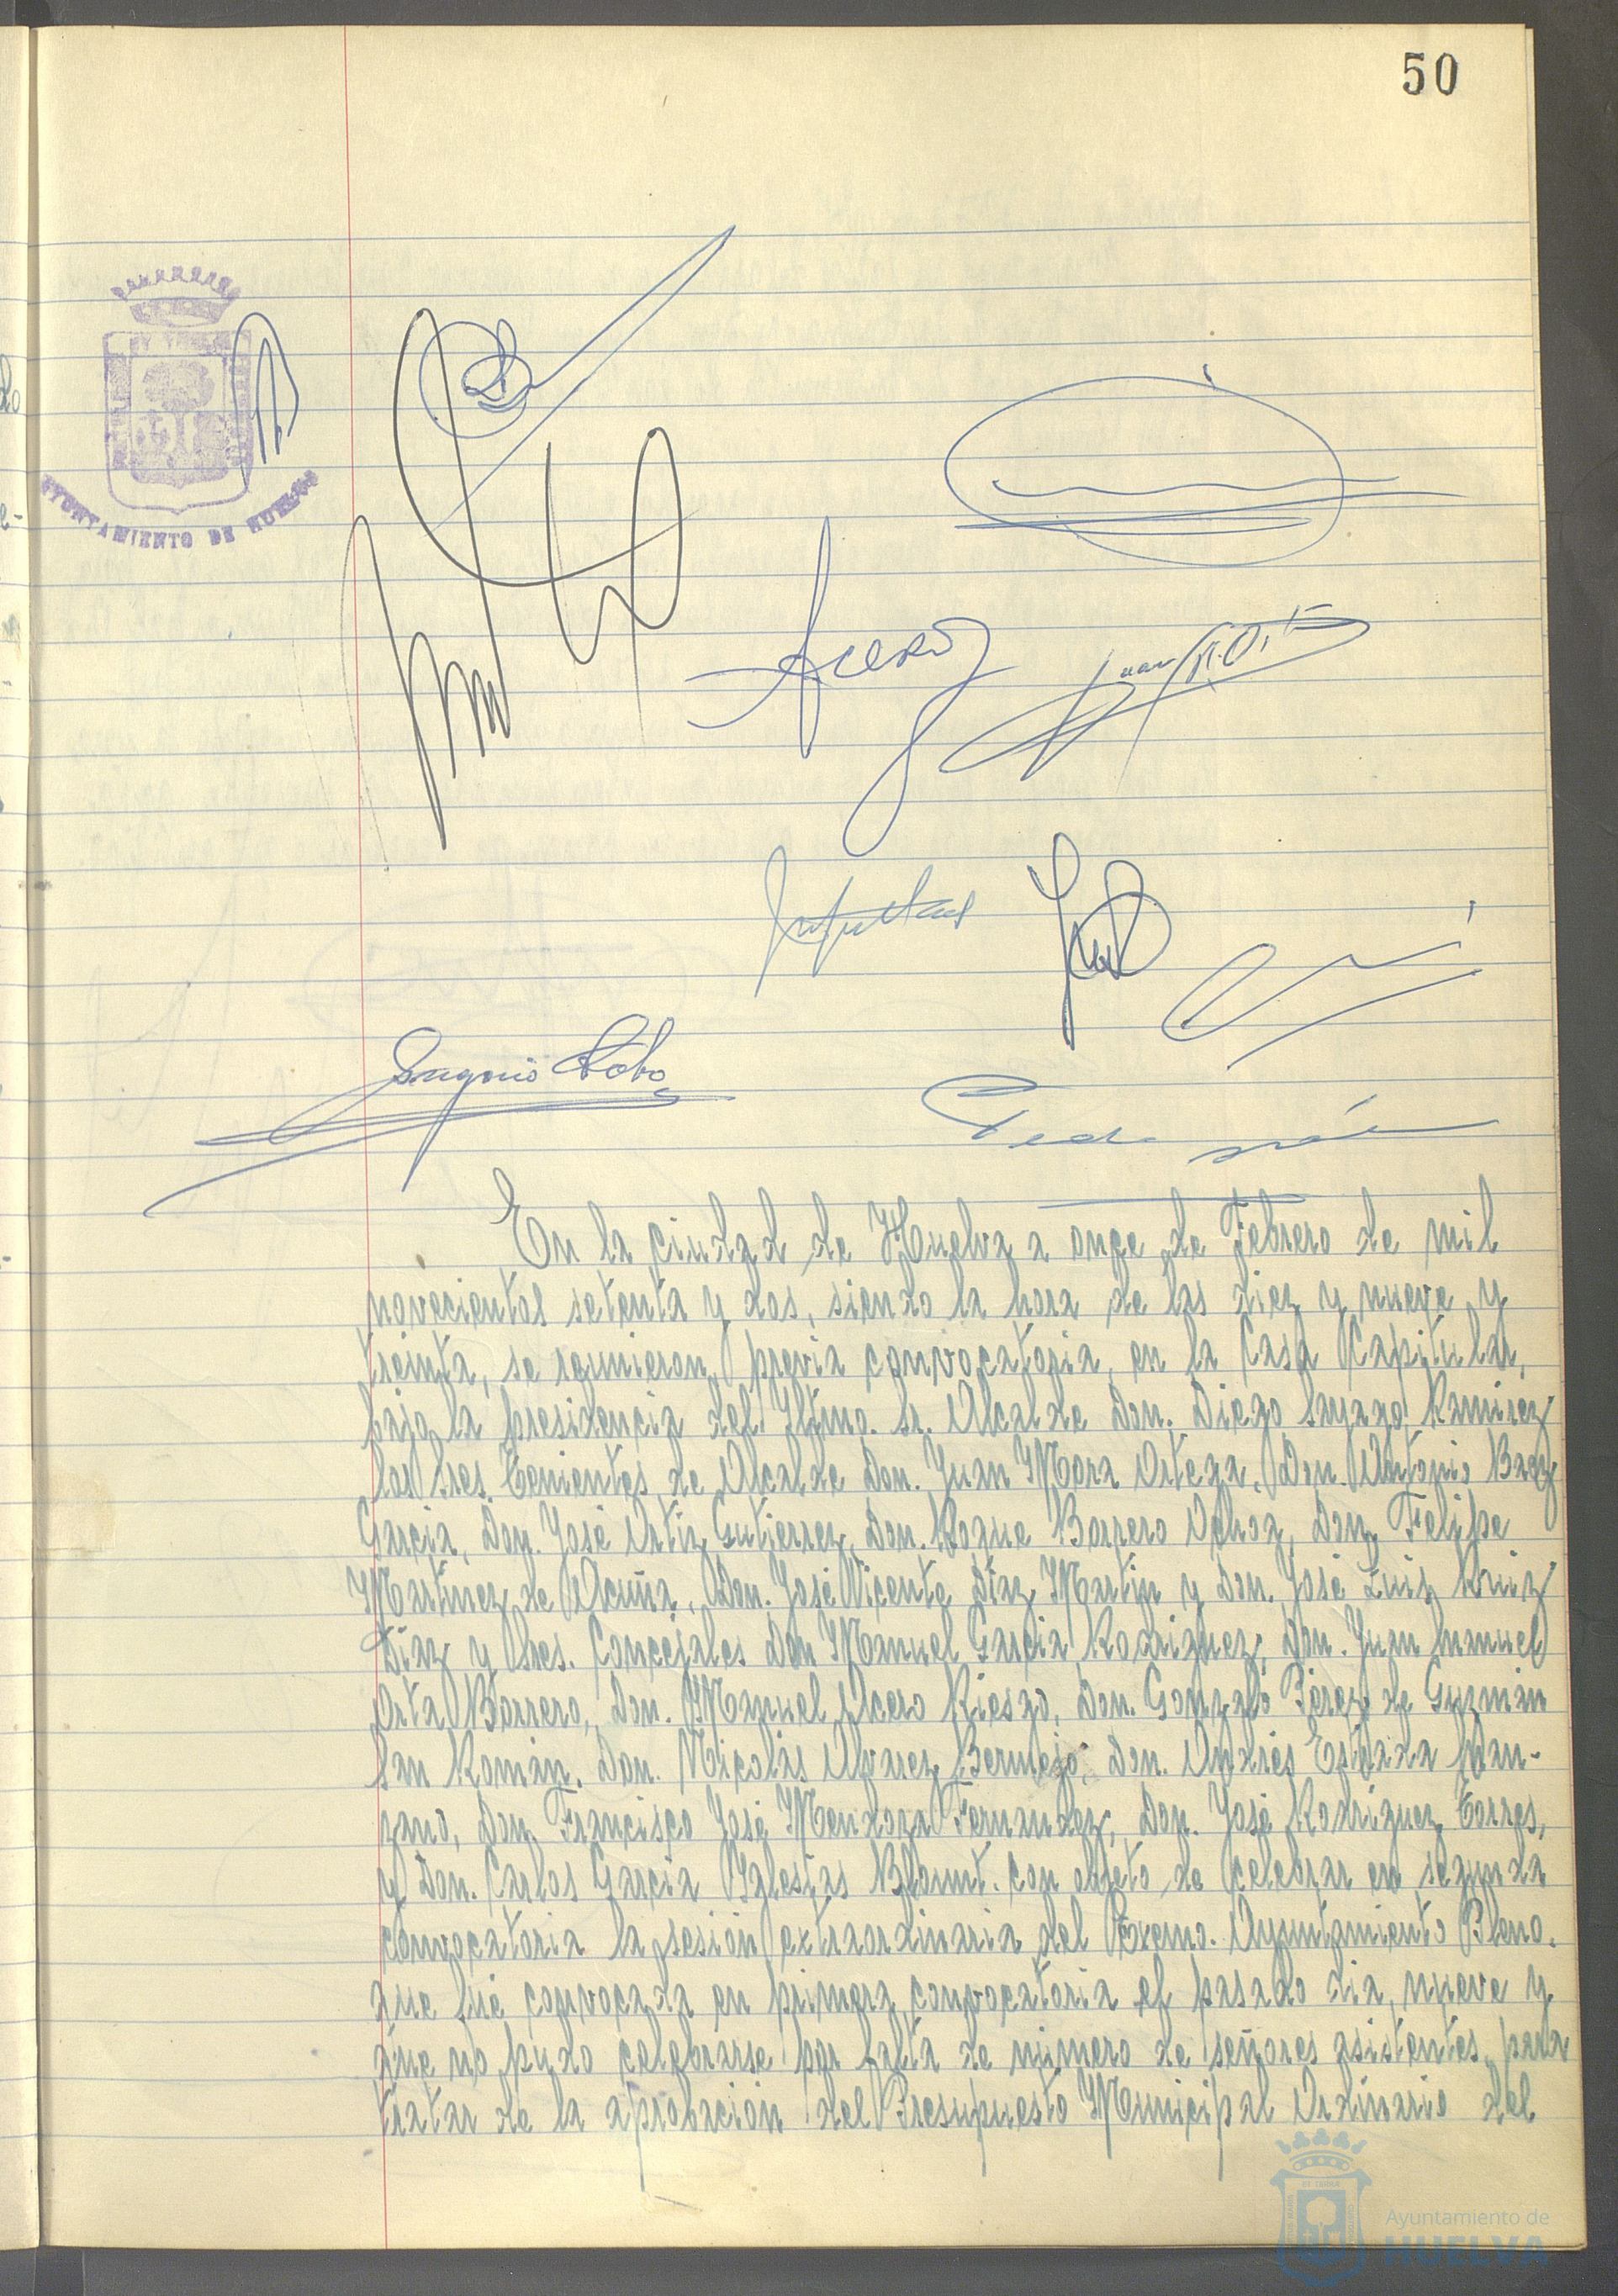 50
AYUNTAMIENTO DE HUELVA
Acero
En la ciudad de Huelva a once de Febrero de mil
novecientos setenta y dos, siendo la hora de las diez y nueve y
treinta, se reunieron, previa convocatoria, en la Casa Capitular,
bajo la presidencia del Iltmo. Sr. Alcalde Don. Diego Sayago Ramirez
los Sres. Tenientes de Alcalde Don. Juan Mora Ortega, Don. Antonio Baez
Garcia, Don. José Ortiz Gutierrez, Don. Roque Borrero Ochoa, Don. Felipe
Martinez de Acuña, Don. José Vicente Díaz Martin y Don. José Luis Ruiz
Díaz y Sres. Concejales Don Manuel Garcia Rodriguez, Don. Juan Manuel
Orta Borrero, Don. Manuel Acero Riesgo, Don. Gonzalo Pérez de Guzmán
San Román, Don. Nicolás Alvarez Bermejo, Don. Andrés Estrada Man-
zano, Don. Francisco José Mendoza Fernandez, Don. José Rodriguez Torres,
y Don. Carlos Garcia Yglesias Blount. con objeto de celebrar en segunda
convocatoria la sesión extraordinaria del Excmo. Ayuntamiento Pleno.
que fué convocada en primera convocatoria el pasado dia nueve y
que no pudo celebrarse por falta de número de señores asistentes, para
tratar de la aprobación del Presupuesto Municipal Ordinario del
Ayuntamiento de
HUELVA